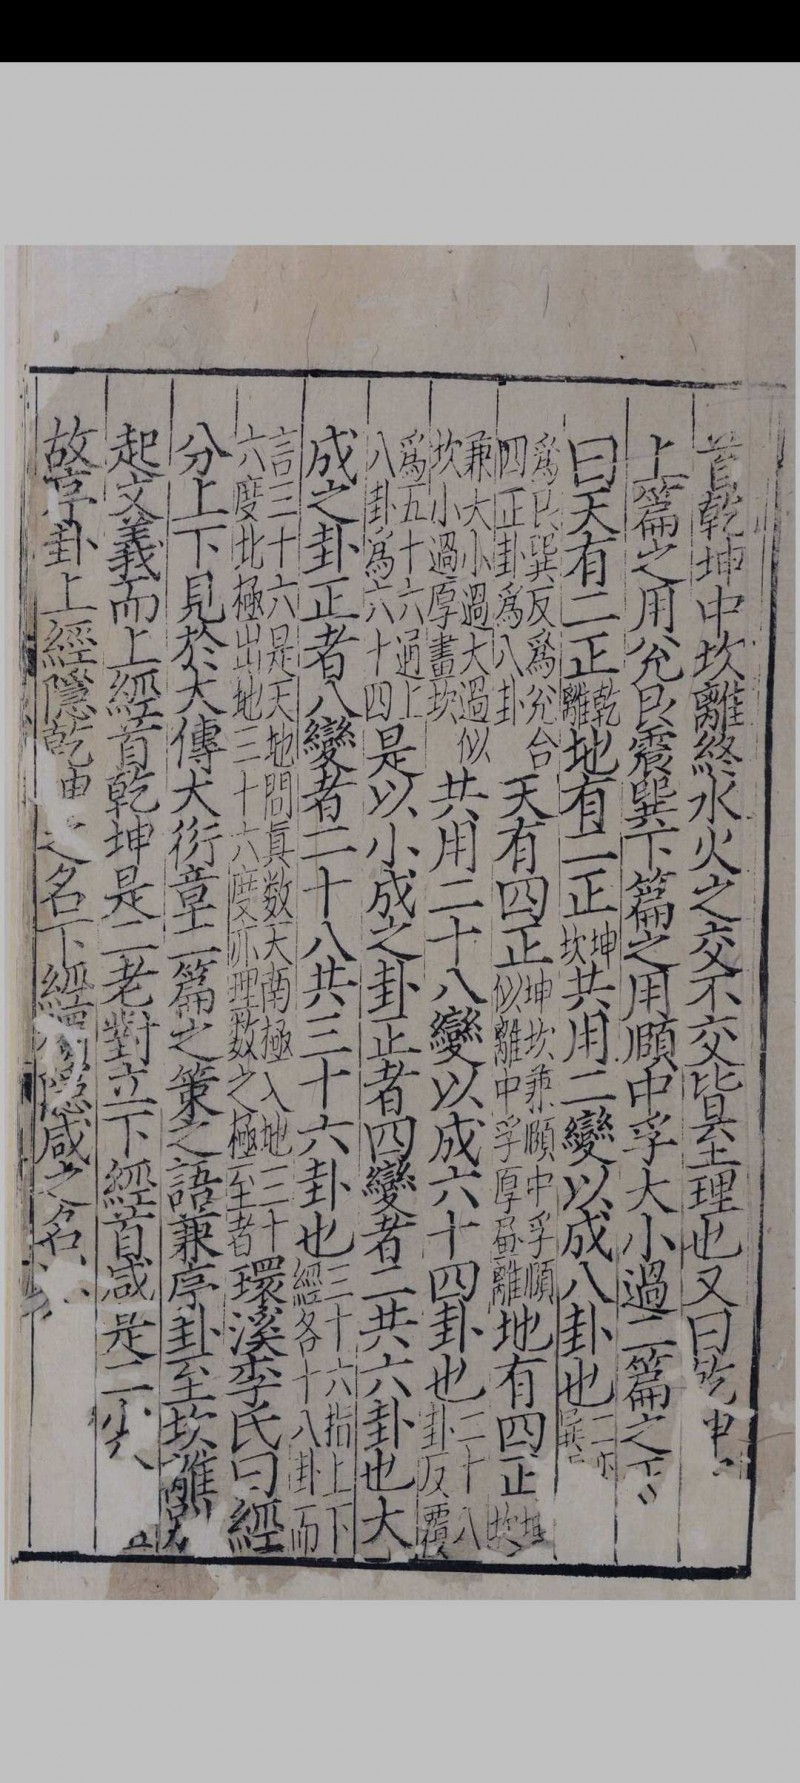 首乾坤中坎離終水火之交不交皆至理也又曰乾坤
上篇之用兌艮震巽下篇之用頤中孚大小過二篇之正
曰天有二正乾離地有二正坤坎共用二變以成八卦也二
爲艮巽反爲兌合四正卦爲八卦天有四正坤坎兼頤中孚頤似離中孚厚畫離地有四正坎
兼大小過大過似坎小過厚畫坎共用二十八變以成六十四卦也二十八卦反覆
爲五十六通上八卦爲六十四是以小成之卦正者四變者二共六卦也大
成之卦正者八變者二十八共三十六卦也三十六指上下經各十八卦而
言三十六是天地間眞数天南極入地三十六度北極出地三十六度亦理数之極至者環溪李氏曰經
分上下見於大傳大衍章二篇之策之語兼序卦至坎離
起文義而上經首乾坤是二老對立下經首咸是二少
故序卦上經隱乾坤之名下經隱咸之名